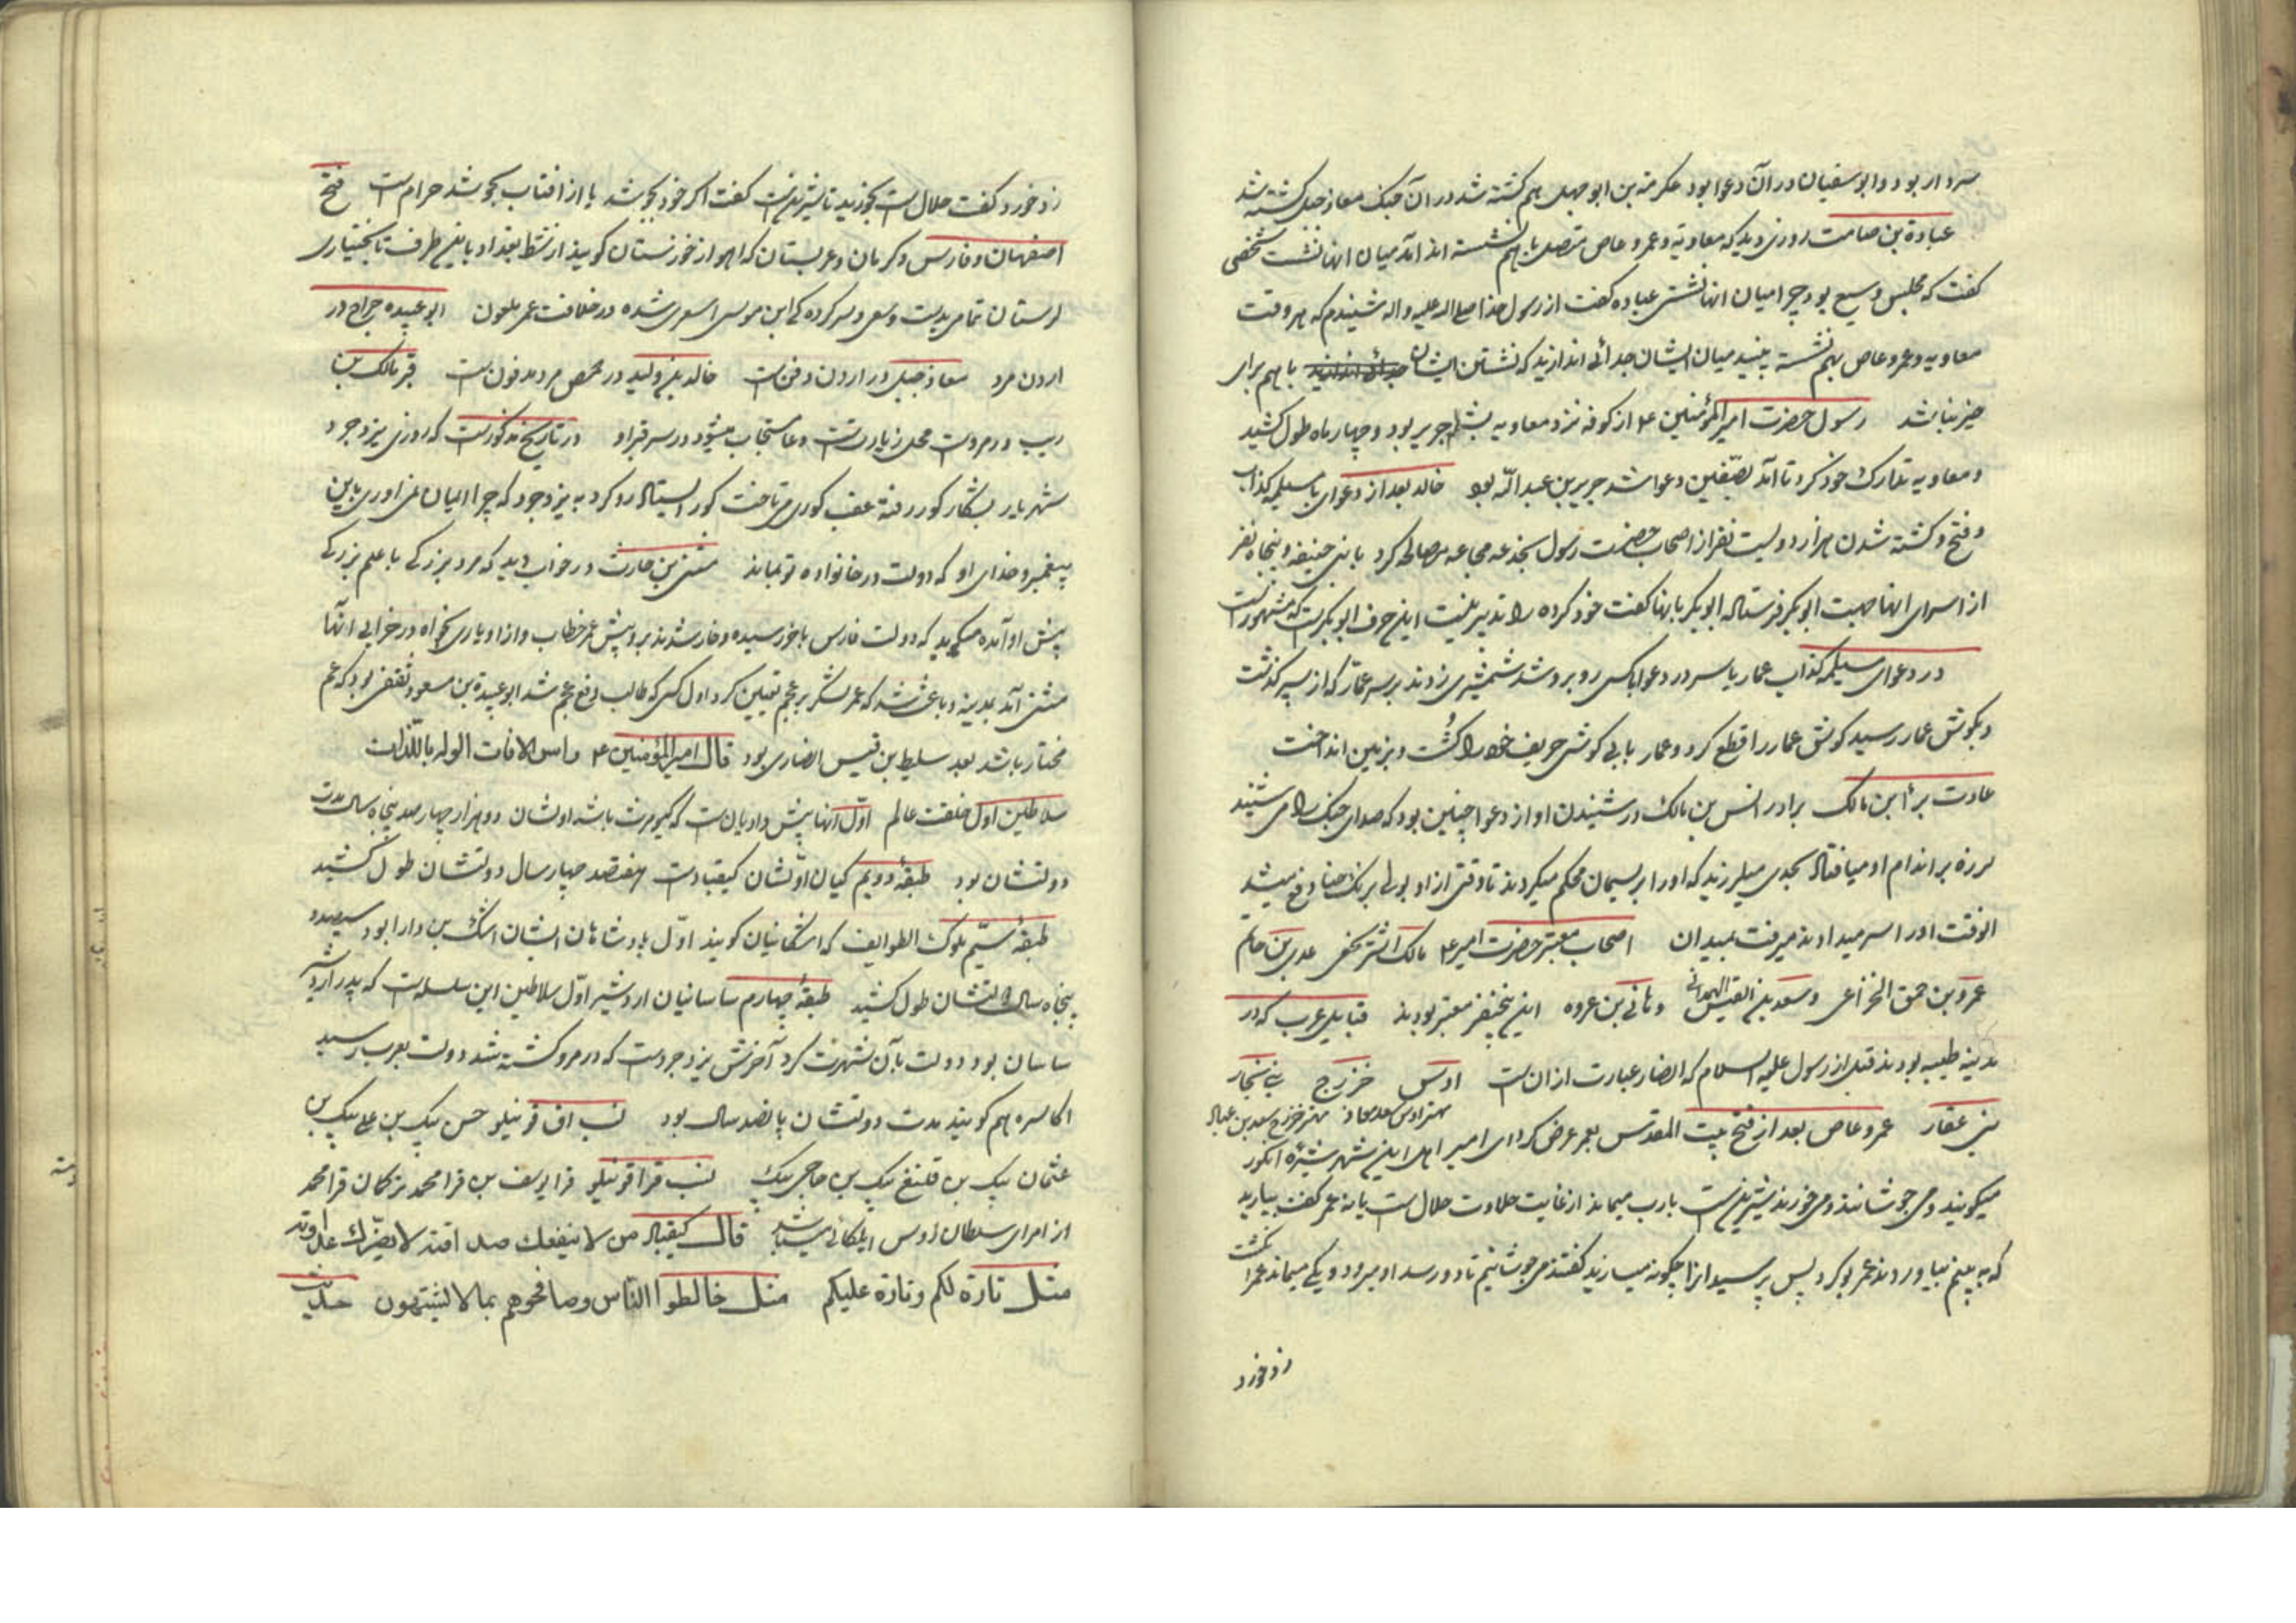 سردار بود و ابو سفیان در آن دعوا بود عکرمة بن ابو جهل هم کشته شد در آن جنک معاذ جبل کشته شد
عبادة بن صامت روزی دید که معاویة و عمرو عاص متصل باهم نشسته اند آمد میان انها نشست شخصی
کفت که مجلس وسیع بود چرا میان انها نشستی عباده کفت از رسول خدا صلی الله علیه و اله شنیدم که هر وقت
معاویه و عمرو عاص بهم نشسته بینید میان ایشان جدائی اندازید که نشستن ایشان باهم برای
خیر نباشد رسول حضرت امیر المؤمنین ۴ از کوفه نزد معاویه جریر بود و چهار ماه طول کشید
و معاویه تدارک خود کرد تا آمد بصفین دعوا شد جریر بن عبد الله بود خالد بعد از دعوای با مسیلمه کذاب
و فتح و کشته شدن هزار و دویست نفر از اصحاب حضرت رسول بخدعه مجاعه مصالحه کرد با بنی حنیفه و پنجاه نفر
از اسرای انها جهت ابو بکر فرستاد ابو بکر بانها کفت خود کرده را تدبیر نیست این حرف ابو بکرست که مشهورست
در دعوای مسیلمه کذاب عمار یاسر در دعوا با کسی روبرو شد شمشیری زدند بر سر عمار که از سپر کذشت
و بکوش عمار رسید کوش عمار را قطع کرد و عمار با بی کوشی حریف خود را کشت و بر زمین انداخت
عادت براء بن مالک برادر انس بن مالک در شنیدن اواز دعوا چنین بود که صدای جنک را می شنید
لرزه بر اندام او میافتاد بحدی میلرزید که او را بریسمان محکم میکردند تا وقتی از او بولی برنک حنا دفع میشد
الوقت او را سر میدادند میرفت بمیدان اصحاب معتبر حضرت امیر ۴ مالک اشتر نخعی عدی بن حاتم
عمرو بن حمق الخزاعی و سعد بن القیس الهمدانی و هانی بن عروه این پنج نفر معتبر بودند قبایل عرب که در
مدینه طیبه بودند قبل از رسول علیه السلام که انصار عبارت از انست اوس خزرج بنی نجار
مهتر اوس سعد معاذ مهتر خزرج سعد بن عباد
بنی عفار عمرو عاص بعد از فتح بیت المقدس بعمر عرض کرد ای امیر اهل این شهر شیره انکور
میکویند و می جوشانند و می خورند شیرینست بارب میماند از غایت حلاوت حلال است یا نه عمر کفت بیارید
که به بینم بیاوردند عمر بو کرد پس پرسید انرا چکونه میسازید کفتند می جوشانیم تا دو رسد او میرود و یکی میماند عمر انکشت
زد خورد
زد خورد کفت حلال است بخورید تا شیرینست کفت اکر خود بجوشد یا از افتاب بجوشد حرام است فتح
اصفهان و فارس و کرمان و عربستان که اهواز خوزستان کویند از شط بغداد باین طرف تا بختیاری
لرستان تمامی بدست و سعی و سرکرده کی ابن موسی اسعری شده در خلافت عمر ملعون ابو عبیده جراح در
اردن مرد معاذ جبل در اردن دفن است خالد بن ولید در حمص مرد مدفون است قبر مالک بن
ریب در مروست محل زیارتست و دعا مستجاب میشود در سر قبر او در تاریخ مذکورست که روزی یزدجرد
شهریار بشکار کور رفته عقب کوری می تاخت کور ایستاد رو کرد به یزدجرد که چرا ایمان نمی اوری باین
پیغمبر و خدای او که دولت در خانواده تو بماند مثنی بن حارث در خواب دید که مرد بزرکی با علم بزرکی
پیش او آمده میکوید که دولت فارس باخر رسیده و خار شدند برو پیش عمر خطاب و از او یاری بخواه در خرابی انها
مثنی آمد بمدینه و باعث شد که عمر لشکر بر عجم تعیین کرد اول کسی که طالب دفع عجم شد ابو عبیدة بن مسعود ثقفی بود که عم
مختار باشد بعد سلیط بن قیس انصاری بود قال امیر المؤمنین ۴ راس الافات الوله باللذات
سلاطین اول خلقت عالم اوّل انها پیش دادیان است که کیومرث باشد اولشان دو هزار چهار صد پنجاه سال مدت
دولتشان بود طبقهٔ دویم کیان اوّلشان کیقبادست هفتصد چهار سال دولتشان طول کشید
طبقهٔ سیّم ملوک الطوایف که اشکانیان کویند اوّل پادشاهان ایشان اشک بن دارا بود سیصد و
پنجاه سال دولتشان طول کشید طبقهٔ چهارم ساسانیان اردشیر اوّل سلاطین این سلسله است که پدر اردشیر
ساسان بود دولت بآن شهرت کرد آخرش یزدجردست که در مرو کشته شد دولت بعرب رسید
اکاسره هم کویند مدت دولتشان پانصد سال بود نسب اق قوینلو حسن بیک بن علی بیک بن
عثمان بیک بن قتلغ بیک بن حاجی بیک نسب قرا قوینلو قرا یوسف بن قرا محمد ترکمان قرا محمد
از امرای سلطان اویس ایلکانی میباشد قال کیقباد من لا ینفعک صداقته لا یضرک عداوته
مثل تارة لکم و تارة علیکم مثل خالطوا الناس و صافحوهم بما لا یشتهون حدیث